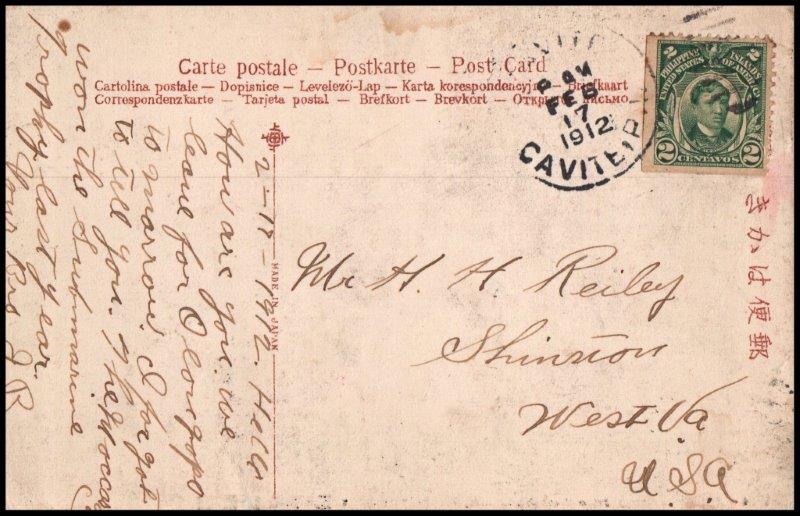 Carte postale — Postkarte — Post Card
Cartolina postale — Dopisnice — Levelező-Lap — Karta korespondencyjna — Briefkaart
Correspondenzkarte — Tarjeta postal — Brefkort — Brevkort — Открытое письмо
CAVITE
FEB
17
1912
CAVITE, P.I.
PHILIPPINE ISLANDS
UNITED STATES OF AMERICA
2 CENTAVOS 2
きかは便郵
MADE IN JAPAN
Mr H. H. Reiley
Shinnston
West Va
USA
2-17-1912. Hello
How are you. We
leave for Olongapo
to marrow. I forgot
to tell you. The
won the Submarine
Trophy last year.
Your Bro J R